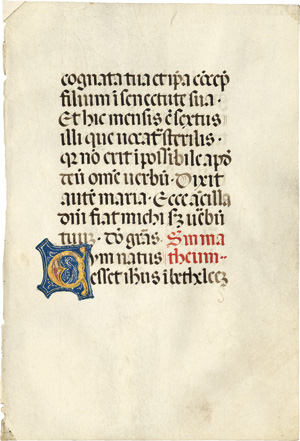 cognata tua et ip̄a cōcep̄
filium ī senectute sua ·
Et hic mensis ē sextus
illi que uocat᷑ sterilis ·
qr nō erit īpossibile apd̄
deū om̄e uerbū · Dixit
autē maria · Ecce ancilla
dn̄i fiat michi sꝫ uerbū
tuūꝫ · dō grās · Scd̄m ma
Cvm natus theum ·
esset ihūs ī bethleeꝫ